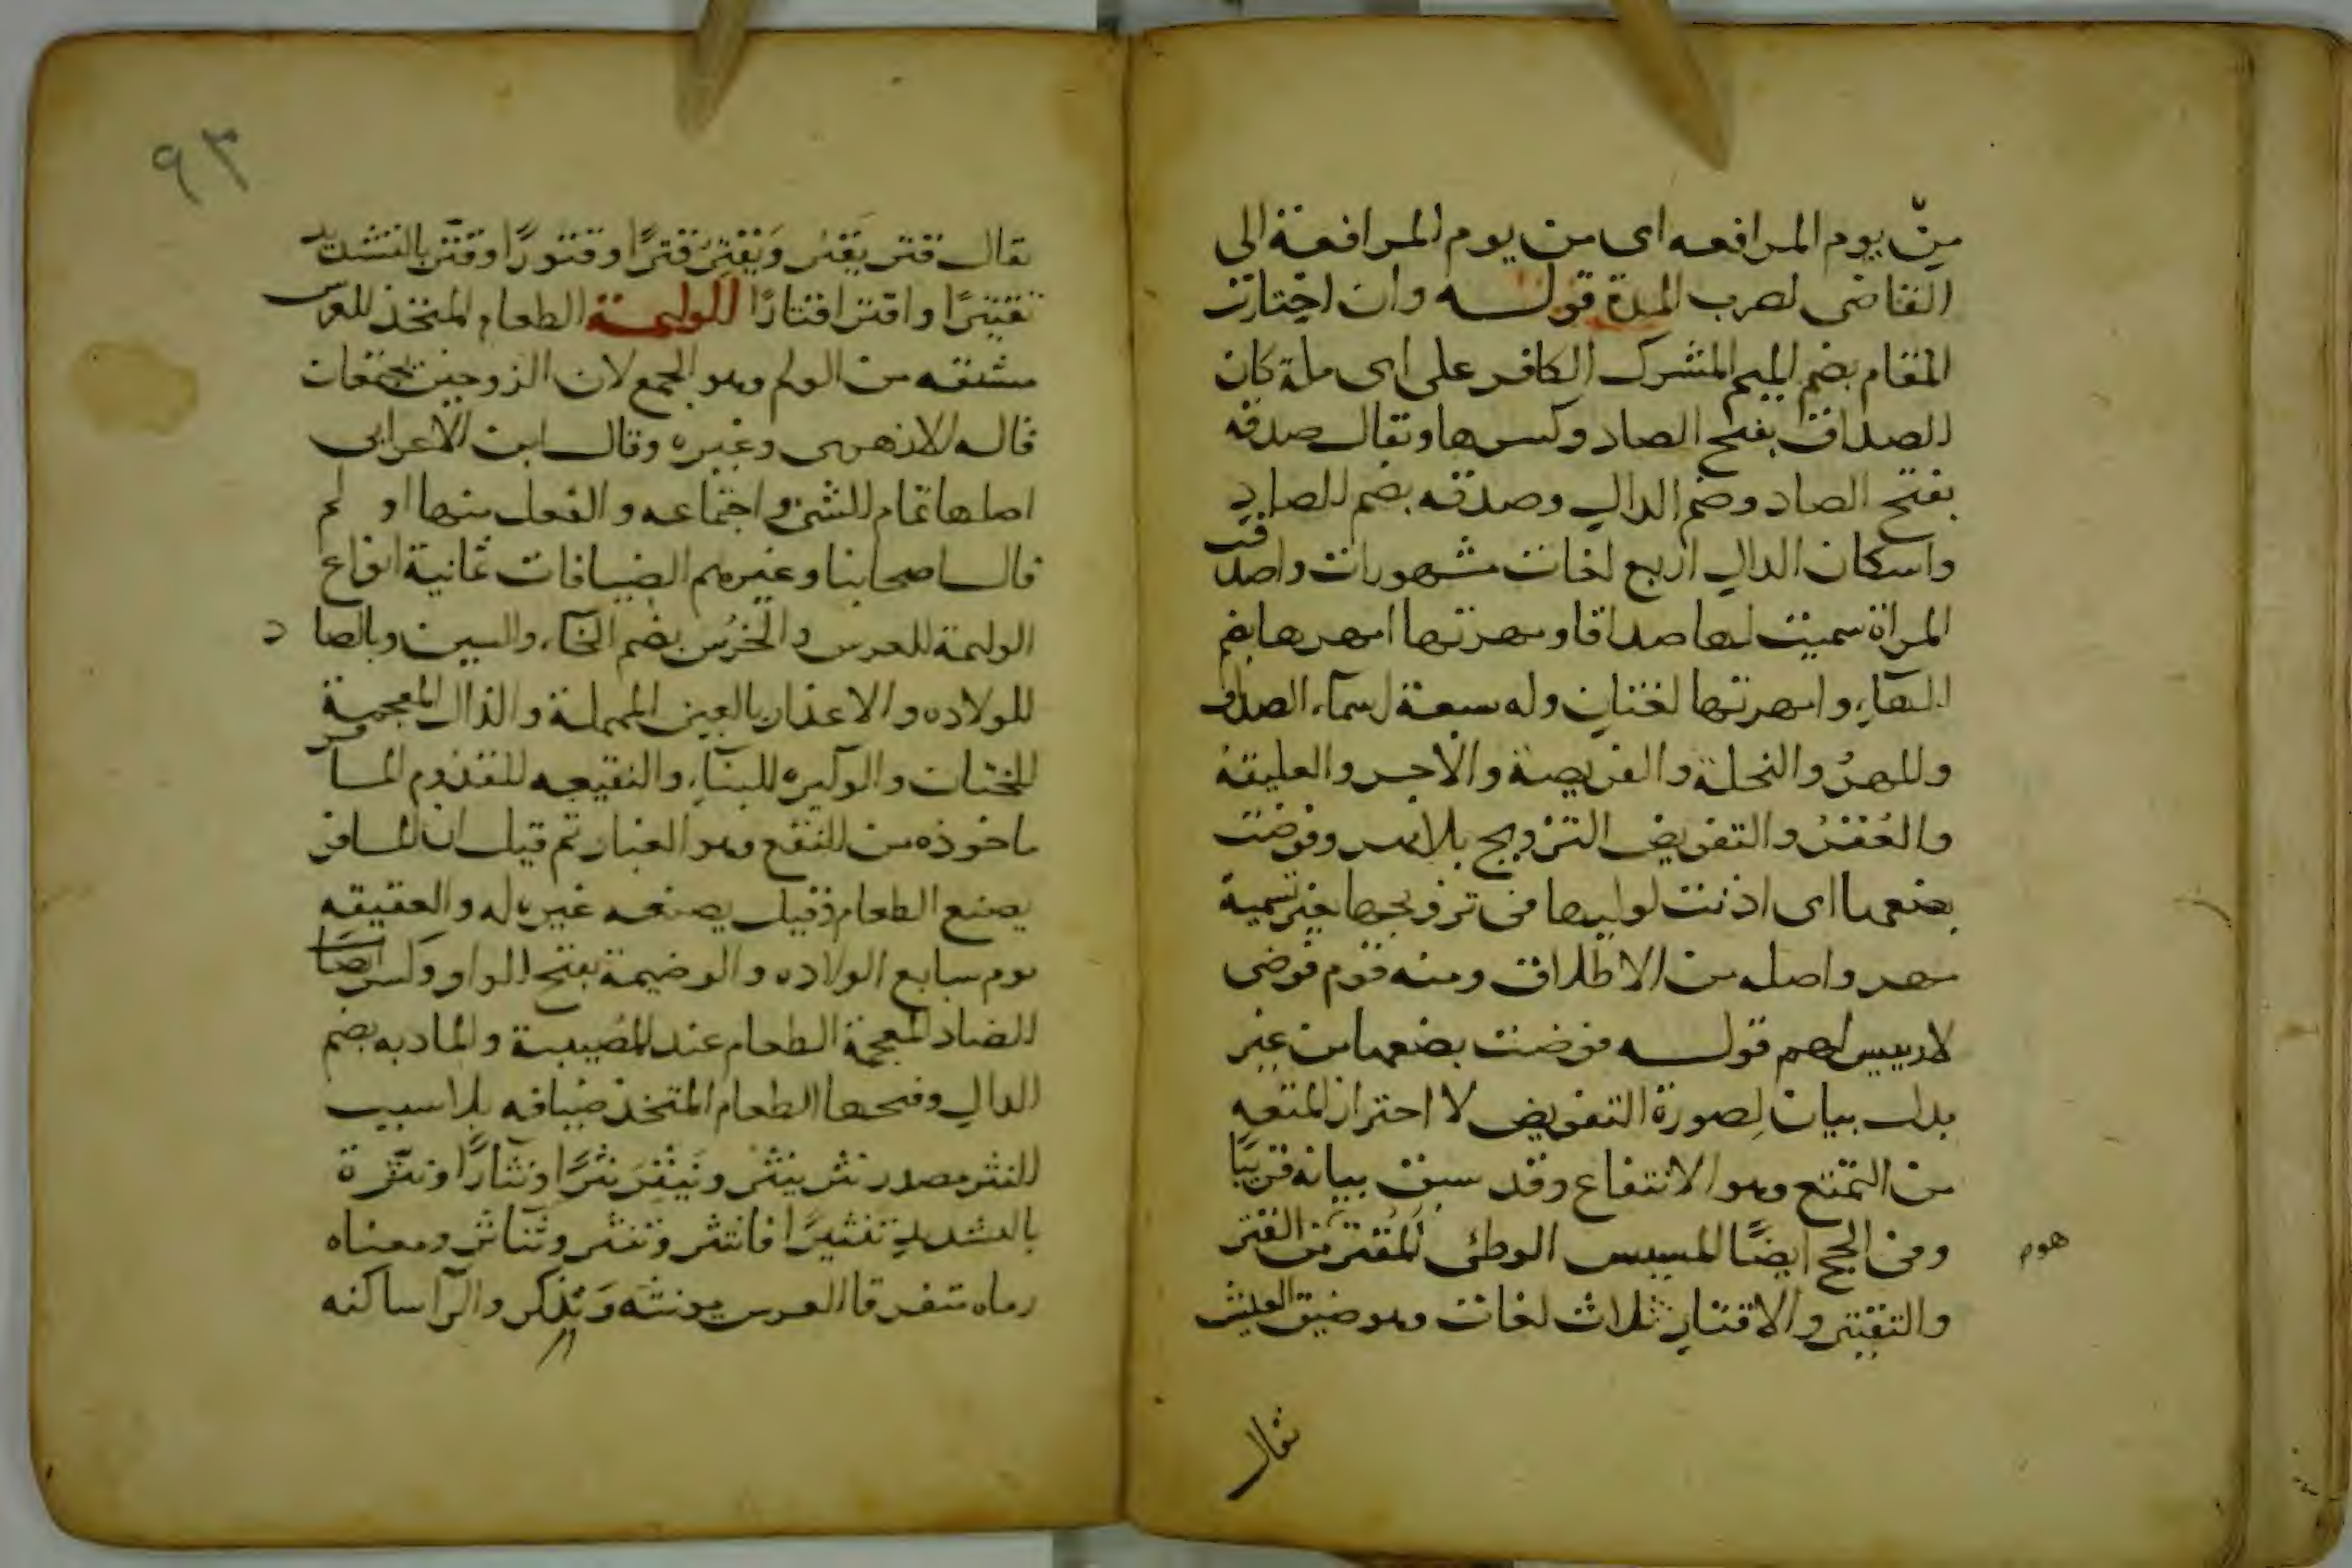 مِنْ يوم المرافعه اى من يوم المرافعة الى
القاضى لضرب المدة قوله وان اختارت
المقام بضم الميم المشرك الكافر على اى ملة كان
الصداق بفتح الصاد وكسرها ويقال صدقه
بفتح الصاد وضم الدال وصدقه بضم الصاد
واسكان الدال اربع لغات مشهورات واصدقت
المراة سميت لها صداقا ومهرتها امهرها بضم
الهاءِ وامهرتها لغتان وله سبعة اسماء الصداق
والمهرُ والنحلة والفريضة والاجر والعليقة
والعُقْرُ والتفويض التزويج بلا مهر وفوضت
بضعها اى اذنت لوليها فى تزويجها بغير تسمية
مهر واصله من الاطلاق ومنه قوم فوضى
لا رييس لهم قوله فوضت بضعها من غير
بدل بيان لصورة التفويض لا احتراز المتعه
من التمتع وهو الانتفاع وقد سبق بيانه قريبًا
وفى الحج ايضًا المسيس الوطئ المُقتر من القتر
هوم
والتقتير والاقتار ثلاث لغات وهو ضيق العيش
يقال
٩٣
يقال قتر يَقْتُر وَيَقْتِرُ قترًا وقتورًا وقتّر بالتشديد
تقتيرًا واقتر اقتارًا الوليمة الطعام المتخذ للعرس
مشتقه من الولم وهو الجمع لان الزوجين يجتمعان
قاله الازهرى وغيره وقال ابن الاعرابى
اصلها تمام الشئ واجتماعه والفعل منها او لم
قال اصحابنا وغيرهم الضيافات ثمانية انواع
الوليمة للعرس والخُرْس بضم الخاء والسين وبالصا د
للولاده والاعذار بالعين المهملة والذال المعجمة
للختان والوكيره للبناءِ والنقيعه للقدوم المسافر
ماخوذه من النقع وهو الغبار ثم قيل ان المسافر
يصنع الطعام وقيل يصنعه غيره له والعقيقه
يوم سابع الولاده والوضيمة بفتح الواو وكسر ايضا
الضاد المعجمة الطعام عند المُصيبة والمادبه بضم
الدال وفتحها الطعام المتخذ ضيافه بلا سبب
النثر مصدر نثر ينثُر وينثِر نثرًا ونثارًا ونثّرة
بالتشديد تنثيرًا فانتثر وتنثر وتناثر ومعناه
رماه متفرقا العرس مونثه وَيُذكر والرآ ساكنه